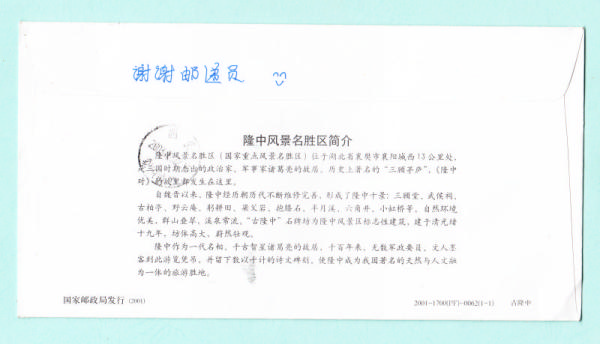 谢谢邮递员
隆中风景名胜区简介
隆中风景名胜区（国家重点风景名胜区）位于湖北省襄樊市襄阳城西13公里处，
是三国时期杰出的政治家、军事家诸葛亮的故居，历史上著名的“三顾茅庐”，《隆中
对》的故事都发生在这里。
自魏晋以来，隆中经历朝历代不断维修完善，形成了隆中十景：三顾堂、武侯祠、
古柏亭、野云庵、躬耕田、梁父岩、抱膝石、半月溪、六角井、小虹桥等。自然环境
优美，群山叠翠，溪泉常流。“古隆中”石牌坊为隆中风景区标志性建筑，建于清光绪
十九年，坊体高大，蔚然壮观。
隆中作为一代名相，千古智星诸葛亮的故居，千百年来，无数军政要员，文人墨
客到此游览凭吊，并留下数以千计的诗文碑刻，使隆中成为我国著名的天然与人文融
为一体的旅游胜地。
国家邮政局发行（2001）
2001-1700(PF)-0062(1-1) 古隆中